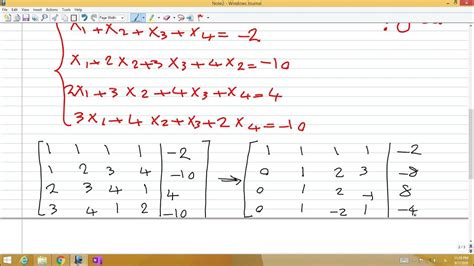 Note2 - Windows Journal
File Edit View Insert Actions Tools Help
x1 + x2 + x3 + x4 = -2
x1 + 2x2 + 3x3 + 4x2 = -10
2x1 + 3x2 + 4x3 + x4 = 4
3x1 + 4x2 + x3 + 2x4 = -10
1 1 1 1 | -2 → 1 1 1 1 | -2
1 2 3 4 | -10 0 1 2 3 | -8
2 3 4 1 | 4 0 1 2 -1 | 8
3 4 1 2 | -10 0 1 -2 1 | -4